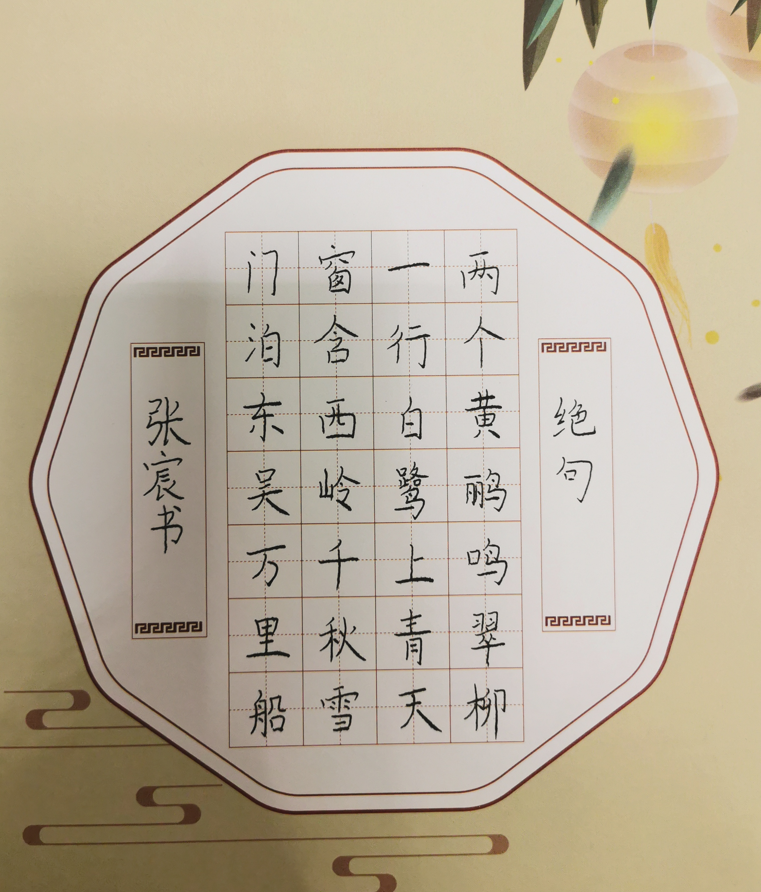 绝句
两个黄鹂鸣翠柳
一行白鹭上青天
窗含西岭千秋雪
门泊东吴万里船
张宸书